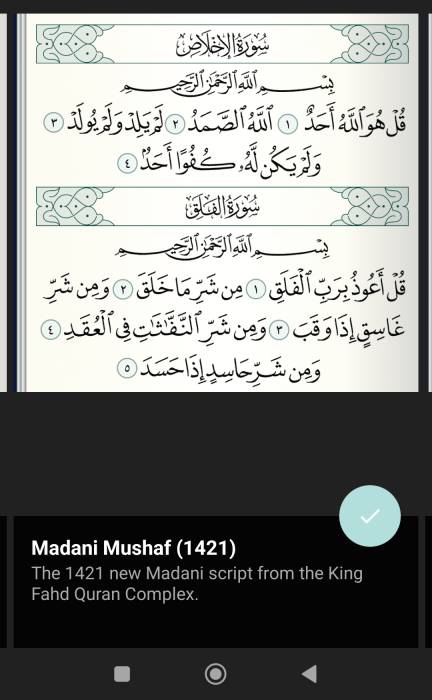 سُورَةُ الإِخْلَاصِ
بِسْمِ ٱللَّهِ ٱلرَّحْمَٰنِ ٱلرَّحِيمِ
قُلْ هُوَ ٱللَّهُ أَحَدٌ ١ ٱللَّهُ ٱلصَّمَدُ ٢ لَمْ يَلِدْ وَلَمْ يُولَدْ ٣
وَلَمْ يَكُن لَّهُۥ كُفُوًا أَحَدٌۢ ٤
سُورَةُ الفَلَقِ
بِسْمِ ٱللَّهِ ٱلرَّحْمَٰنِ ٱلرَّحِيمِ
قُلْ أَعُوذُ بِرَبِّ ٱلْفَلَقِ ١ مِن شَرِّ مَا خَلَقَ ٢ وَمِن شَرِّ
غَاسِقٍ إِذَا وَقَبَ ٣ وَمِن شَرِّ ٱلنَّفَّٰثَٰتِ فِى ٱلْعُقَدِ ٤
وَمِن شَرِّ حَاسِدٍ إِذَا حَسَدَ ٥
Madani Mushaf (1421)
The 1421 new Madani script from the King
Fahd Quran Complex.